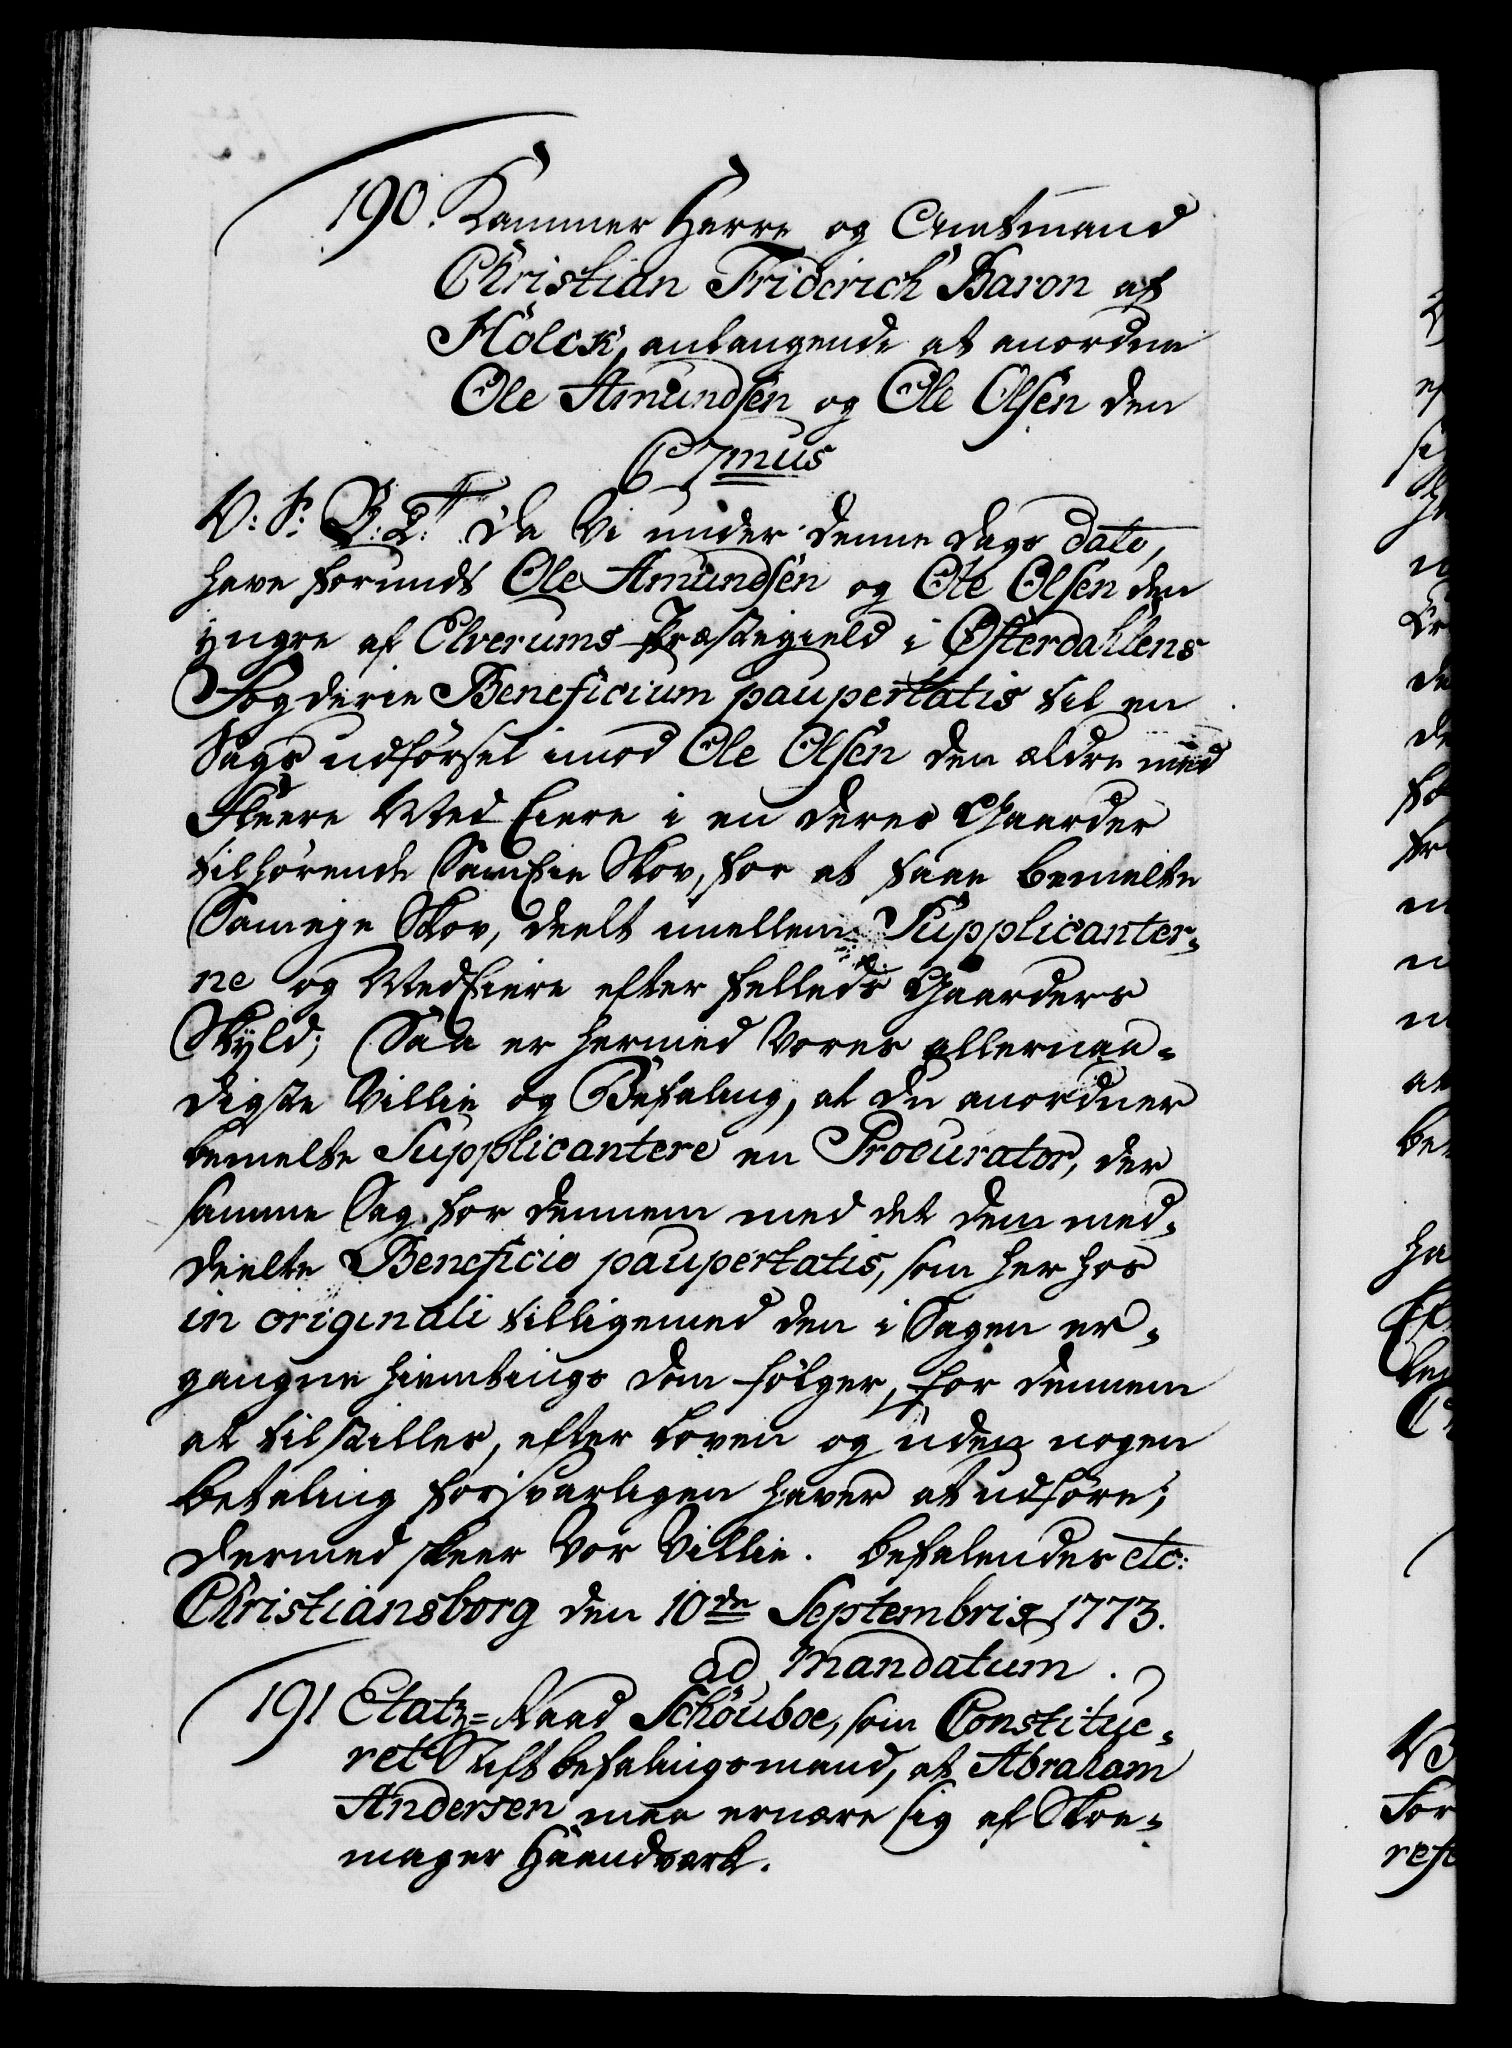 190. Kammer Herre og Amtmand
Christian Friderich Baron af
Holck, anlangende at anordne
Ole Amundsen og Ole Olsen den
mus
V: S: G: T: Da Vi under denne Dags dato,
have forundt Ole Amundsen og Ole Olsen den
yngre af Elverums Præstegield i Østerdahlens
Fogderie Beneficium paupertatis til en
Sags udførsel imod Ole Olsen den ældre med
fleere Med Eiere i en deres Gaarder
tilhørende SamEie Skov, for at faae bemelte
Sameye Skov, deelt imellem Supplicanter-
ne og MedEiere efter felleds Gaarders
Skyld; Saa er hermed Vores allernaa-
digste Villie og Befaling, at du anordner
bemelte Supplicantere en Procurator, der
samme Sag for dennem med det dem med-
deelte Beneficio paupertatis, som her hos
in originali tilligemed den i Sagen er-
gangne Hiemtings Dom følger, for dennem
at tilstilles, efter Loven og uden nogen
betaling forsvarligen haver at udføre;
Dermed skeer Vor Villie. Befalendes etc:
Christiansborg den 10de Septembris 1773.
ad mandatum.
191 Etatz=Raad Schouboe, som Constitue-
ret Stiftbefalingsmand, at Abraham
Andersen maa ernære sig af Skoe-
mager Haandverk.